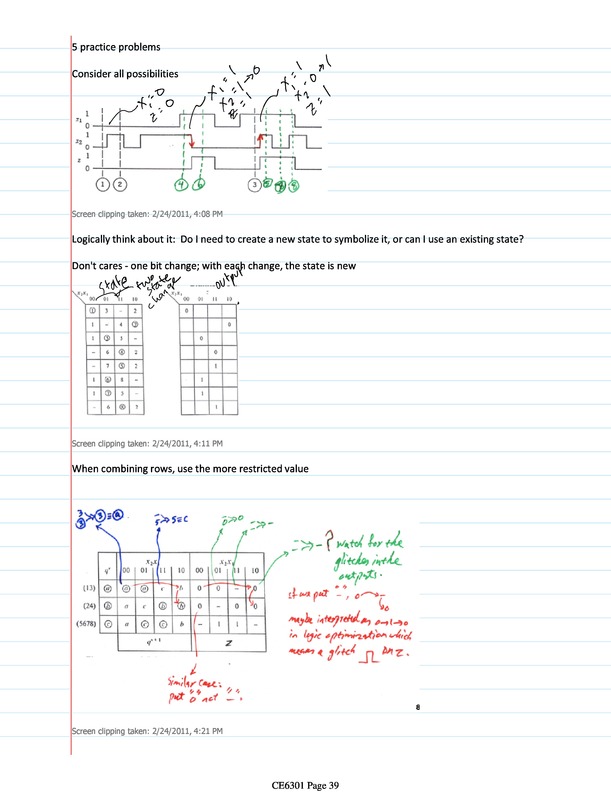 5 practice problems
Consider all possibilities
x₁=0
z=0
x₁=1
x₂=1→0
z=1
x₁=1
x₂=0→1
z=1
x₁ 1
0
x₂ 1
0
z 1
0
1 2 4 6 3 8
Screen clipping taken: 2/24/2011, 4:08 PM
Logically think about it:  Do I need to create a new state to symbolize it, or can I use an existing state?
Don't cares - one bit change; with each change, the state is new
state two state change output
00 01 11 10 00 01 11 10
1 3 - 2 0
1 - 4 2 0
1 3 5 - 0
- 6 4 2 0
- 7 5 2 1
1 6 8 - 1
1 7 5 - 1
- 6 8 7 1
Screen clipping taken: 2/24/2011, 4:11 PM
When combining rows, use the more restricted value
5→5≡C
0→0
-→-
-→- ? watch for the
glitches in the
outputs.
X₂X₁ X₂X₁
qᵛ 00 01 11 10 00 01 11 10
(13) a a c b 0 0 - 0
(24) b a c b b 0 - 0 0
(5678) c a c c b - 1 1 -
qᵛ⁺¹ Z
if we put "-", 0 → -
→0
maybe interpreted as 0→1→0
in logic optimization which
means a glitch on Z.
Similar case:
put "0" not "-".
8
Screen clipping taken: 2/24/2011, 4:21 PM
CE6301 Page 39